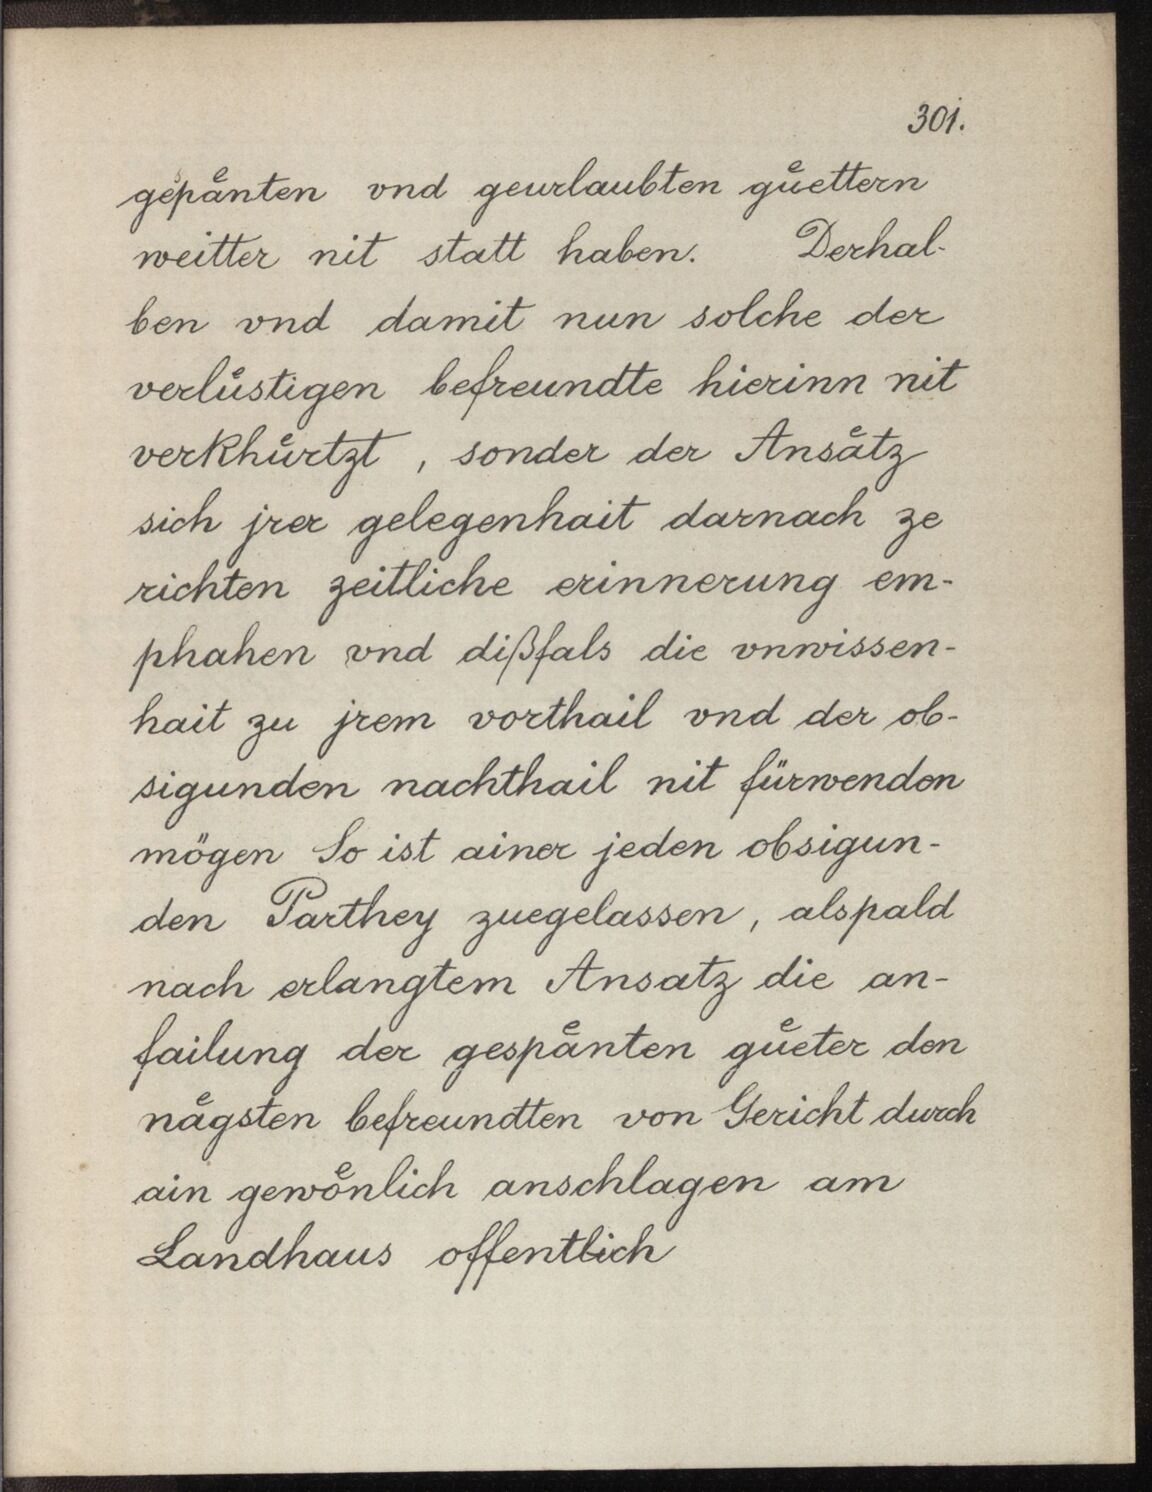 301.
gepaͤnten vnd geurlaubten guͤettern
weitter nit statt haben. Derhal-
ben vnd damit nun solche der
verluͤstigen befreundte hierinn nit
verkhuͤrtzt, sonder der Ansaͤtz
sich jrer gelegenhait darnach ze
richten zeitliche erinnerung em-
phahen vnd dißfals die vnwissen-
hait zu jrem vorthail vnd der ob-
sigunden nachthail nit fürwenden
mögen So ist ainer jeden obsigun-
den Parthey zuegelassen, alspald
nach erlangtem Ansatz die an-
failung der gespaͤnten guͤeter den
naͤgsten befreundten von Gericht durch
ain gewoͤnlich anschlagen am
Landhaus offentlich